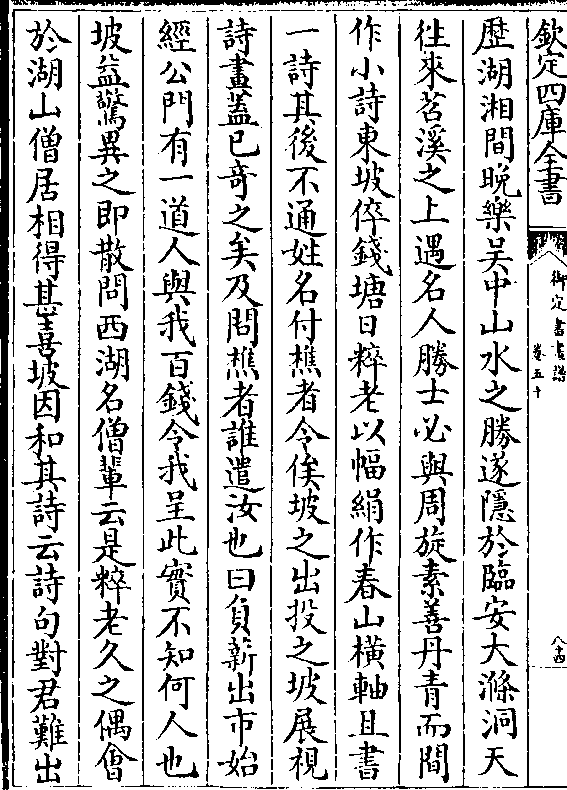 欽定四庫全書
御定書畫譜
卷五十
八十四
歷湖湘間晚樂吴中山水之勝遂隱於臨安大滌洞天
徃來苕溪之上遇名人勝士必與周旋素善丹青而間
作小詩東坡倅錢塘日粹老以幅絹作春山横軸且書
一詩其後不通姓名付樵者令俟坡之出投之坡展視
詩畫蓋已奇之矣及問樵者誰遣汝也曰負薪出市始
經公門有一道人與我百錢令我呈此實不知何人也
坡益驚異之即散問西湖名僧輩云是粹老久之偶會
於湖山僧居相得甚喜坡因和其詩云詩句對君難出